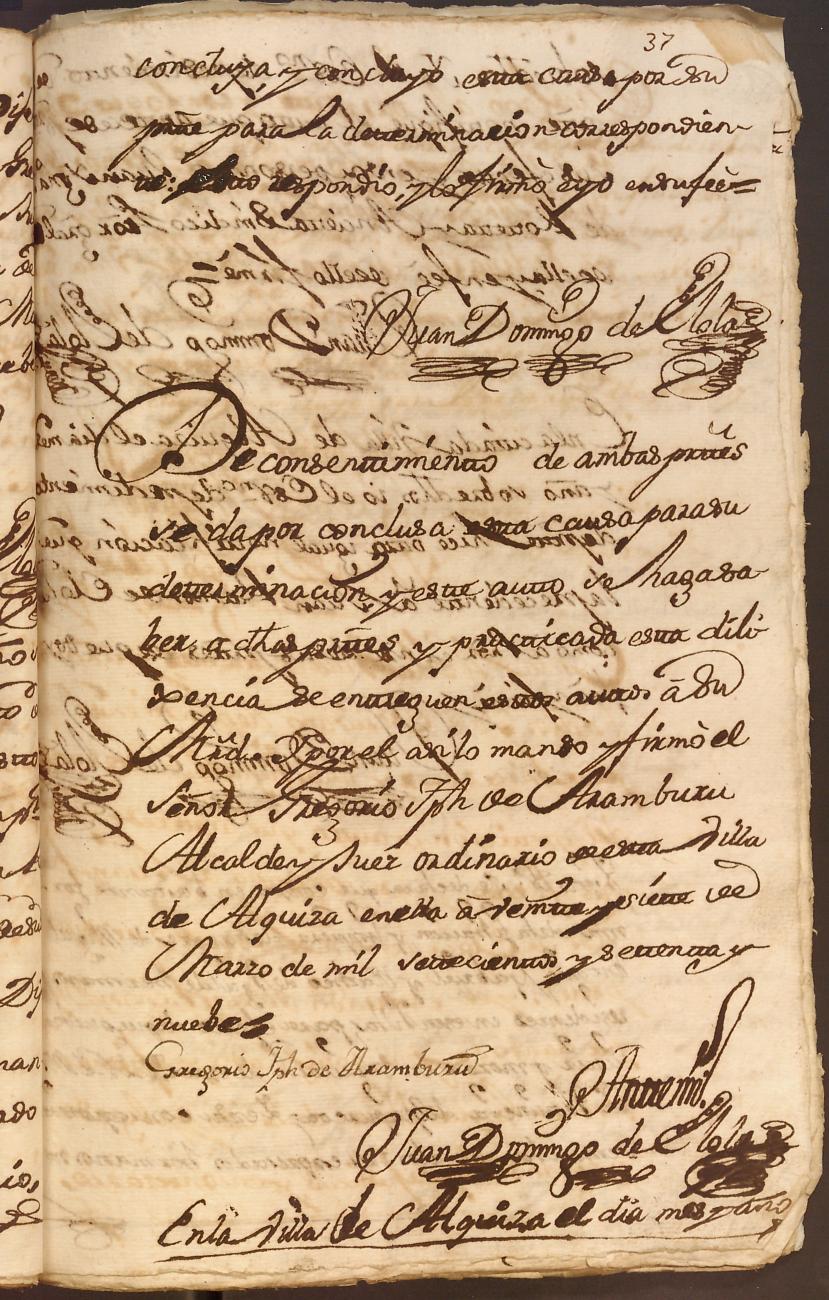 37
concluya, y concluyo esta causa por su
parte para la determinacion correspondien-
te: Esto respondio, y lo firmò, è yo en su feè=
Juan Domingo de Elola
De consentimiento de ambas partes
se da por conclusa esta causa para su
determinación y este auto se haga sa-
ber, a dhas partes y practicada esta dili-
xencia se entreguen estos autos à su
Mrd. y por el asi lo mando y firmò el
Señor Gregorio Jph de Aramburu
Alcalde y Juez ordinario de esta Villa
de Alquiza en ella à veinte y siete de
Marzo de mil settecientos y settenta y
nuebe
Gregorio Jph de Aramburu
Antemi
Juan Domingo de Elola
En la Villa de Alquiza el dia mes y año